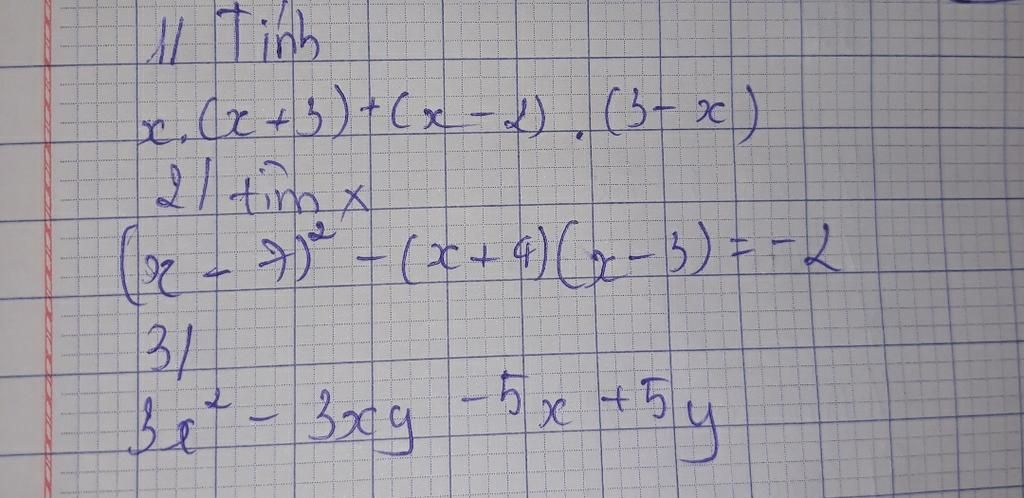 1/ Tính
x.(x+3)+(x-2).(3-x)
2/ tìm x
(x-7)² -(x+4)(x-3)=-2
3/
3x² - 3xy -5x +5y